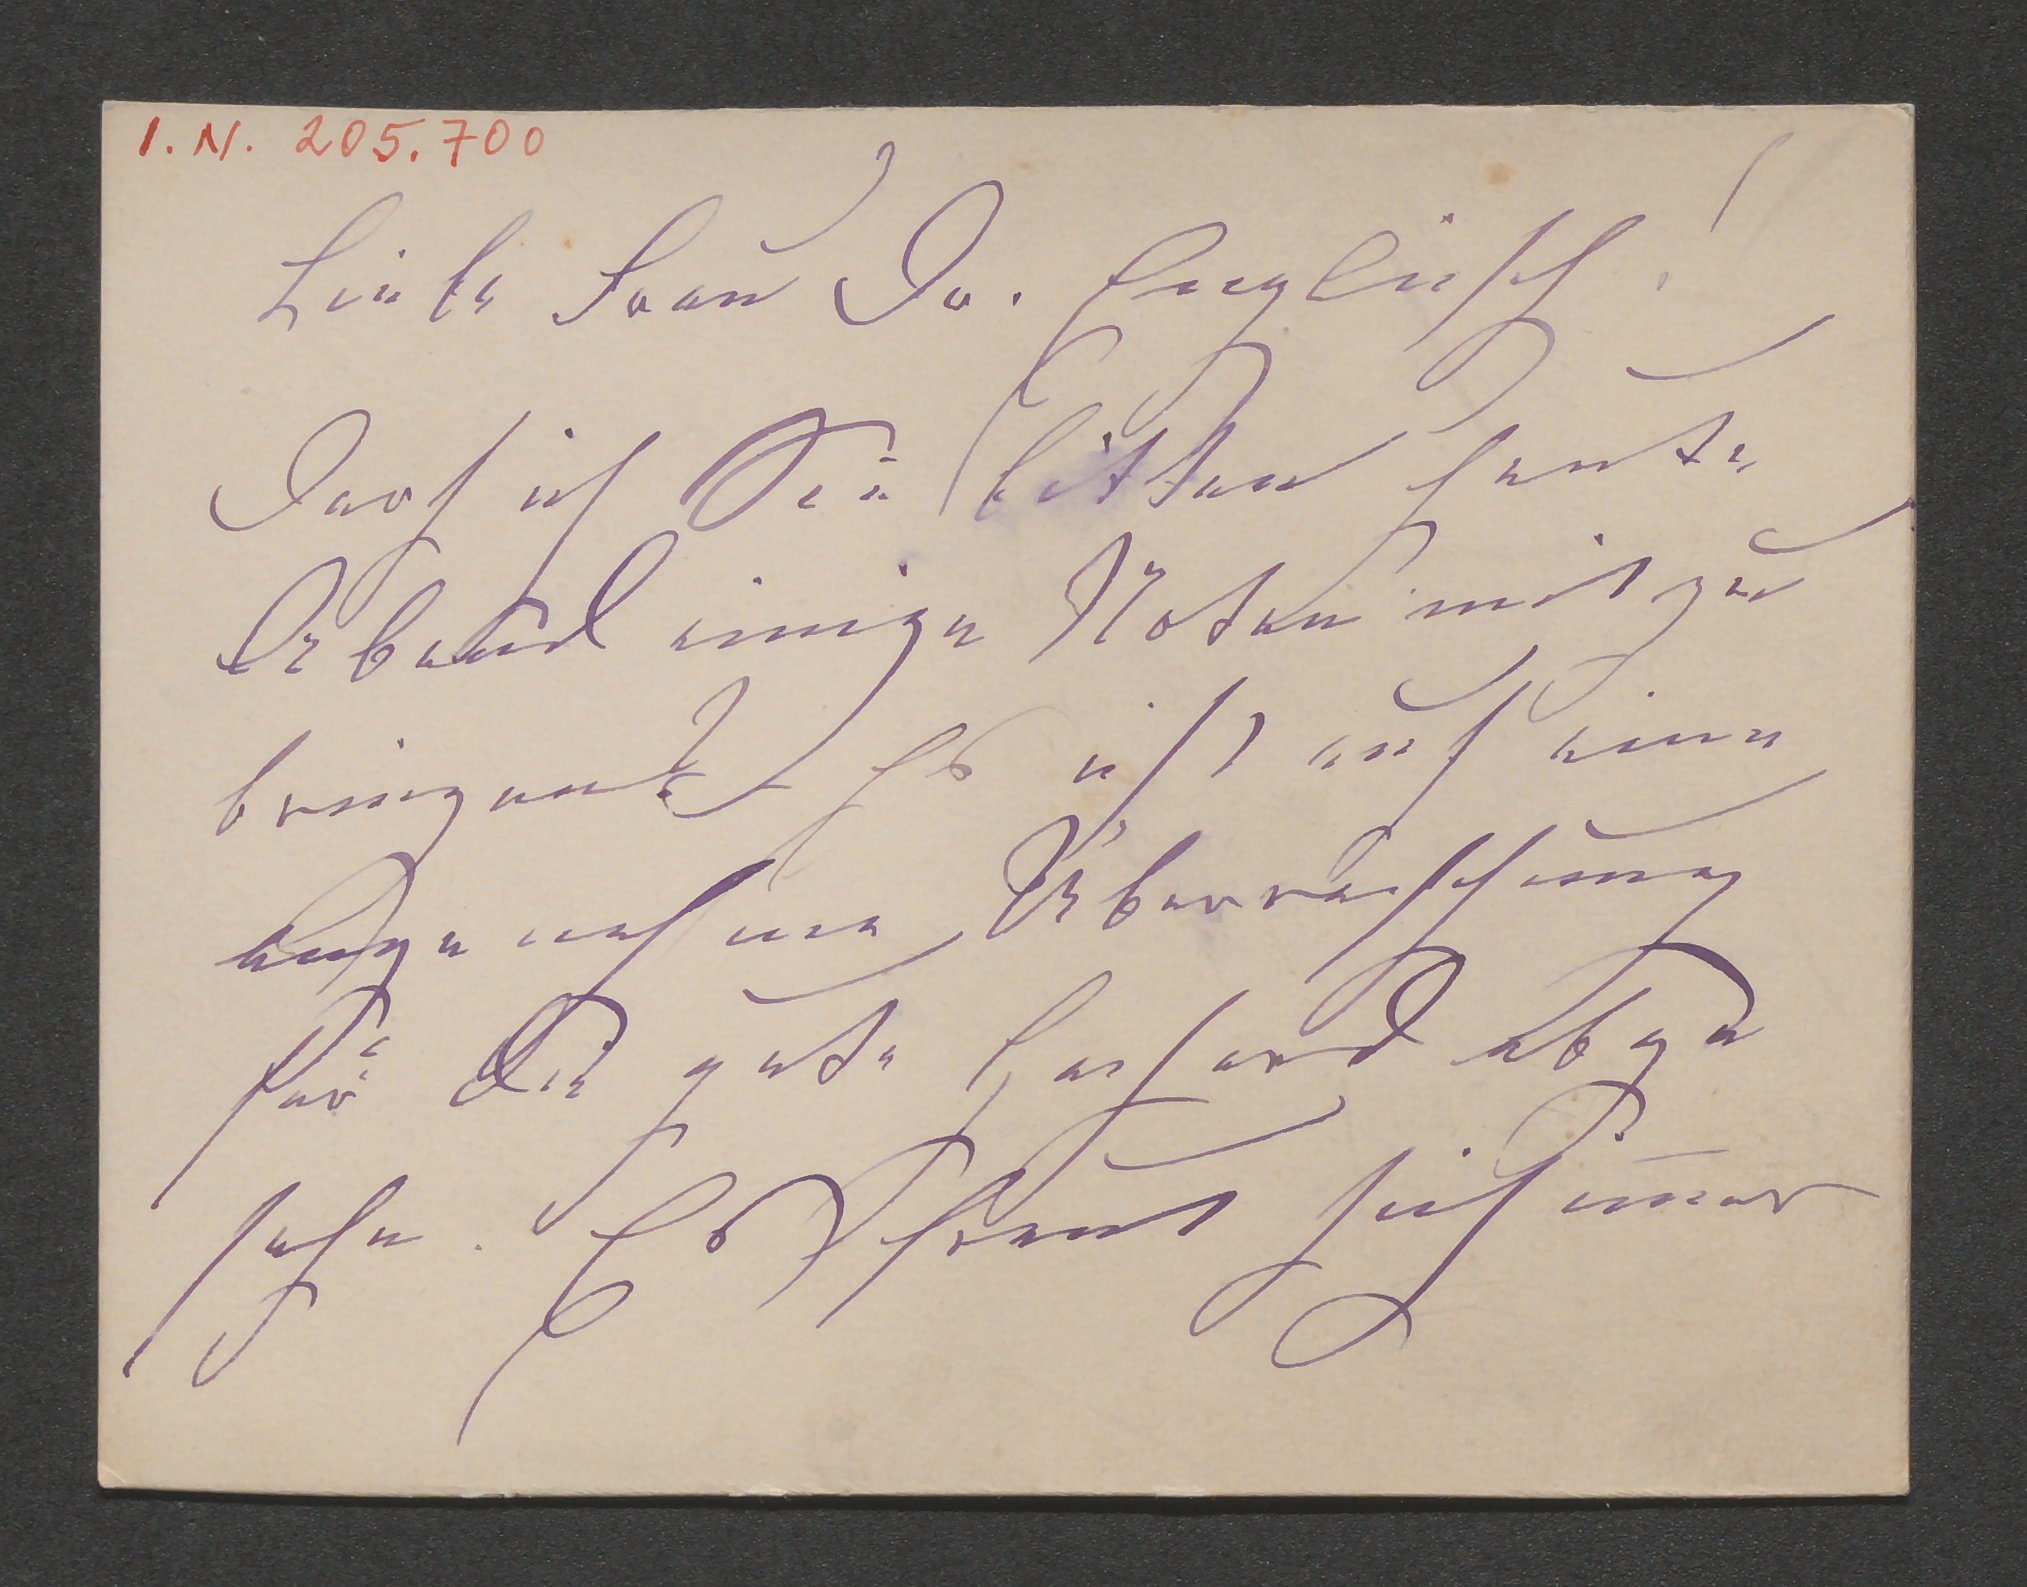 I. N. 205.700
Liebe Frau Dr. Englisch!
Darf ich Sie bitten heute
Abend einige Noten mitzu
bringen? Es ist auf eine
angenehme Überraschung
für die gute Gerhard abge
sehn. Es freut sich immer